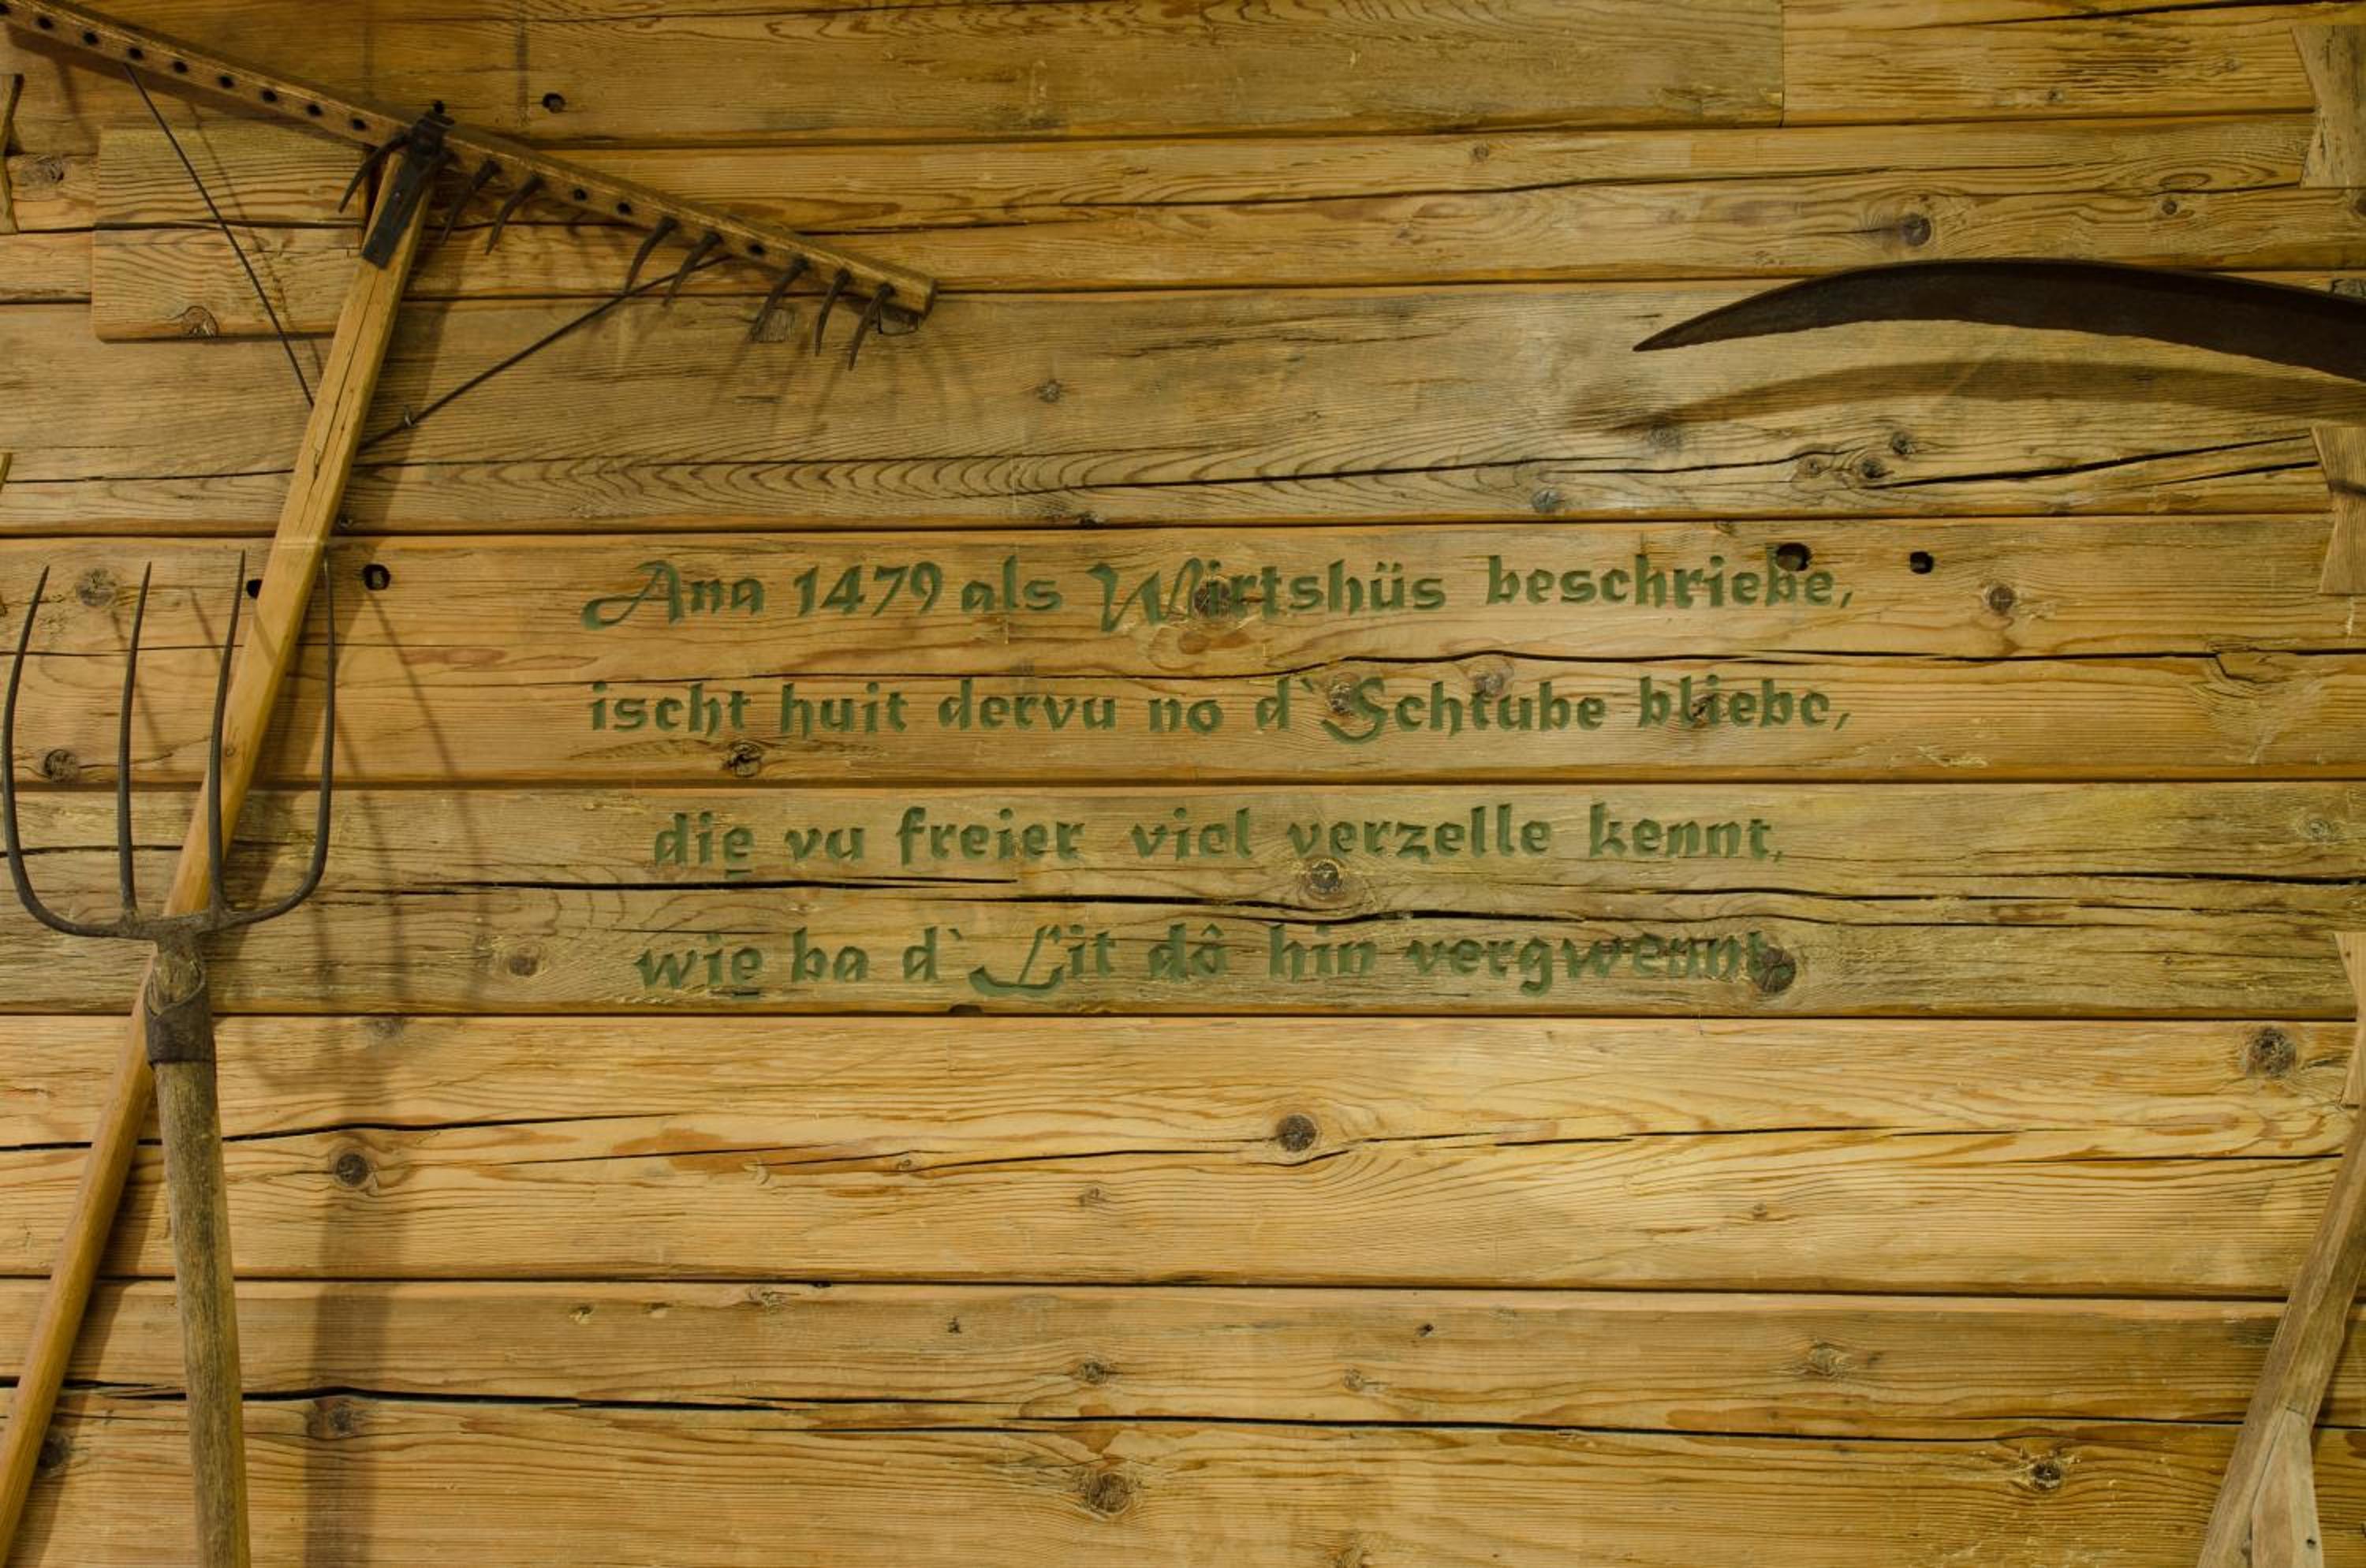 Ana 1479 als Wirtshüs beschriebe,
ischt huit dervu no d`Schtube bliebe,
die̱ vu freier viel verzelle kennt,
wie̱ ba d`Lit dô hin vergwennt.